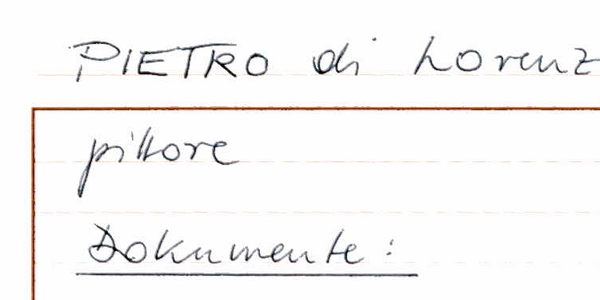 PIETRO di Lorenz
pittore
Dokumente: